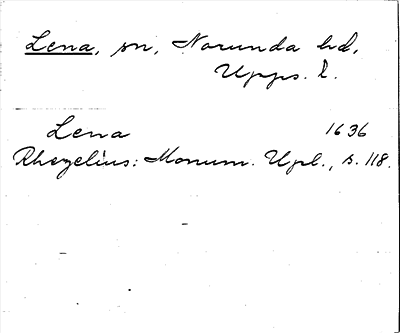 Lena, sn, Norunda hd,
Upps. l.
Lena 1636
Rhezelius: Monum. Upl., s. 118.